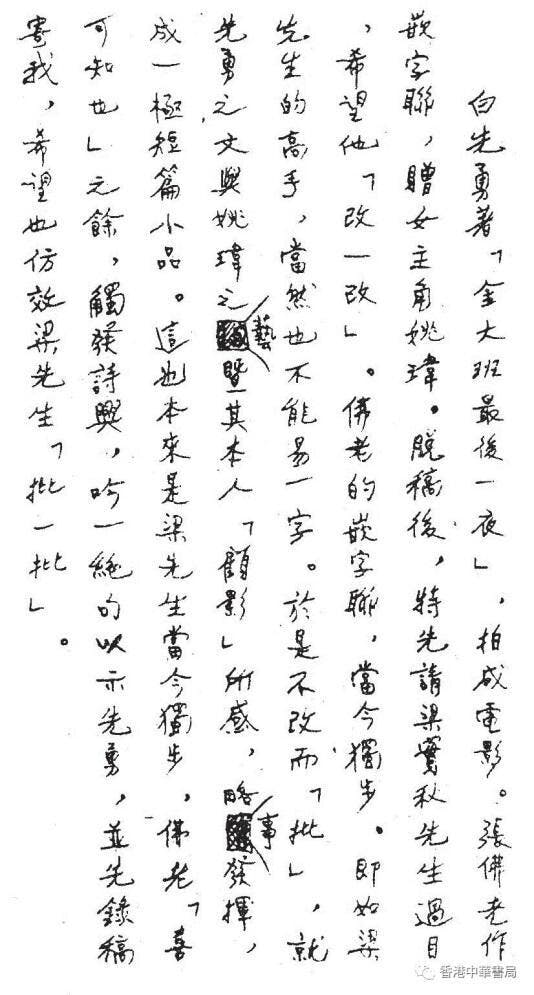 白先勇著「金大班最後一夜」，拍成電影。張佛老作
嵌字聯，贈女主角姚瑋。脫稿後，特先請梁實秋先生過目
，希望他「改一改」。佛老的嵌字聯，當今獨步。即如梁
先生的高手，當然也不能易一字。於是不改而「批」，就
先勇之文與姚瑋之藝暨其本人「顧影」所感，略事發揮，
成一極短篇小品。這也本來是梁先生當今獨步，佛老「喜
可知也」之餘，觸發詩興，吟一絕句以示先勇，並先錄稿
寄我，希望也仿效梁先生「批一批」。
香港中華書局